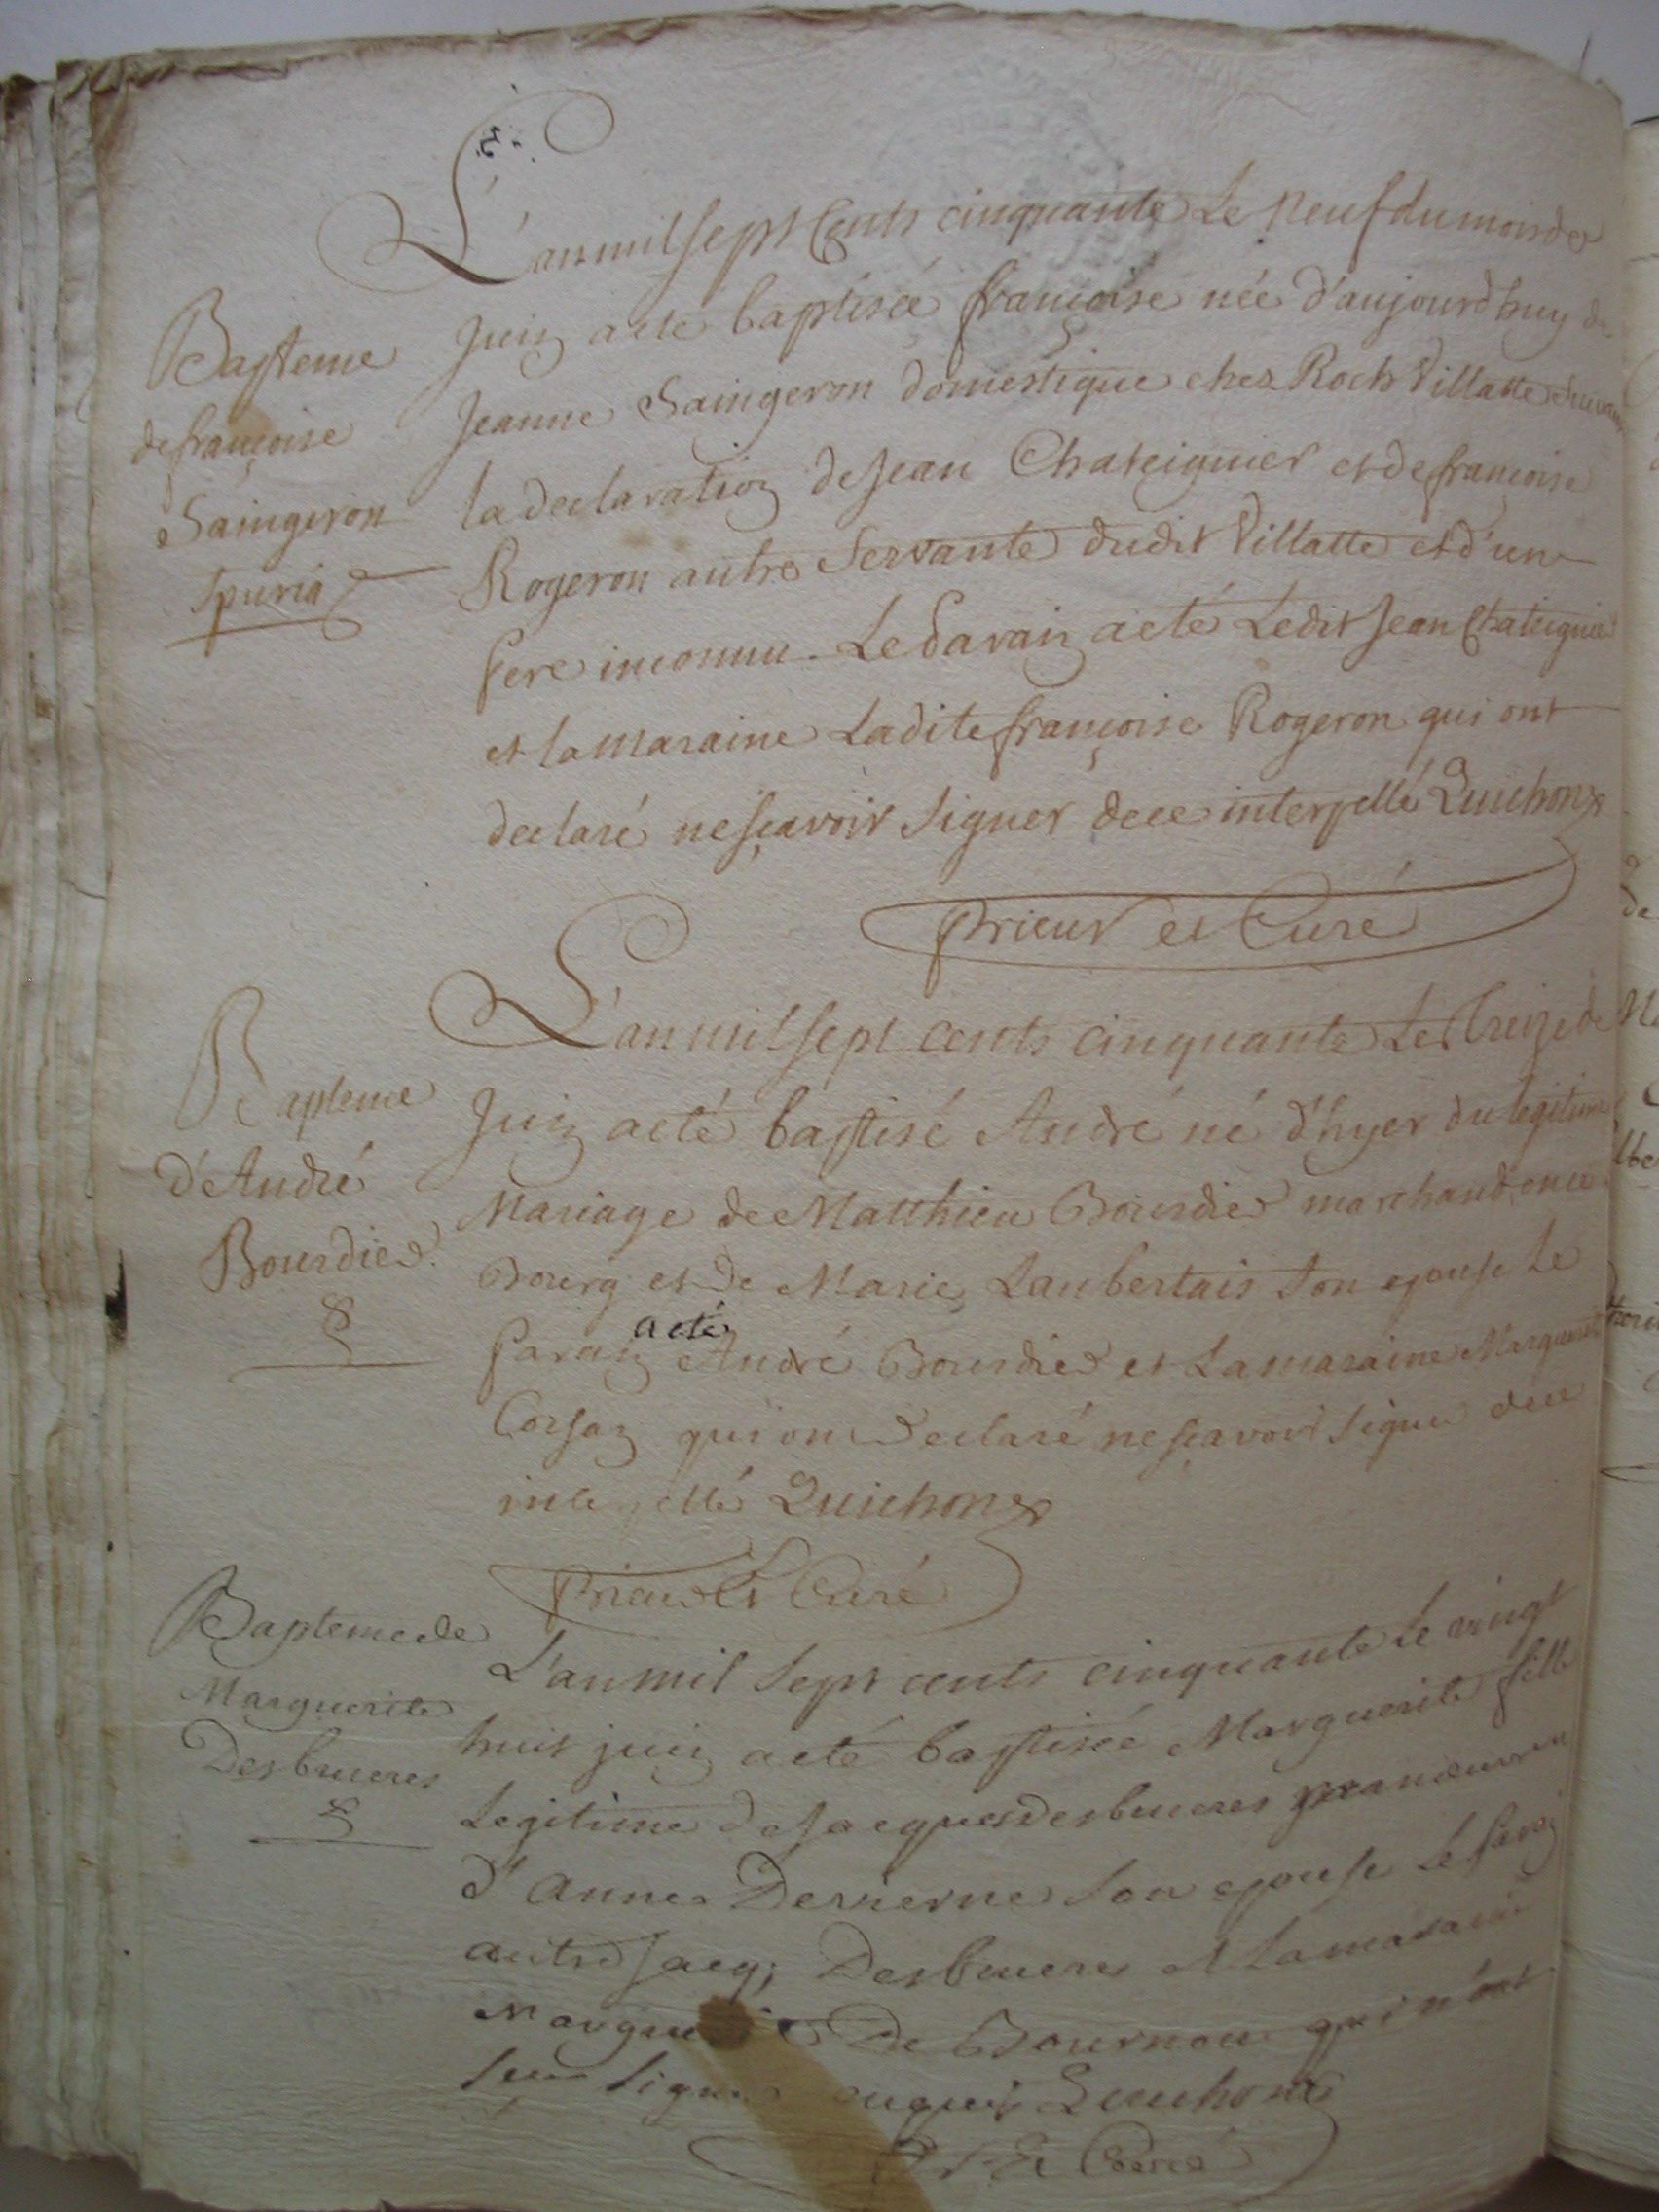 L'an mil sept Cents cinquante Le neuf du mois de
Bapteme
de françoise
Saingeron
spuria
Juin a eté baptisée françoise née d'aujourd'huy de
Jeanne Saingeron domestique chez Roch Villatte suivant
la declaration de Jean Chateignier et de françoise
Rogeron autre Servante dudit Villatte et d'un
pere inconnu. Le parain a eté Ledit Jean Chateignier
et la Maraine Ladite françoise Rogeron qui ont
declaré ne sçavoir signer de ce interpellé Quichon
Prieur et Curé
L'an mil sept cents cinquante Le treize de
Bapteme
d'André
Bourdier
Juin a eté baptisé André né d'hyer du legitime
Mariage de Matthieu Bourdier marchand en ce
Bourg et de Marie Laubertais son epouse Le
parain a eté André Bourdier et La maraine Marguerite
qui ont declaré ne sçavoir signer de ce
interpellé Quichon
Prieur et Curé
Bapteme de
Marguerite
Desbrueres
L'an mil sept cents cinquante Le vingt
huit juin a eté baptisée Marguerite fille
Legitime de Jacques Desbrueres et
d'Anne son epouse Le parain
autre Jacq; Desbrueres et La maraine
Marguerite De Bournou qui n'ont
sceu signer enquis Quichon
Pr Et Curé